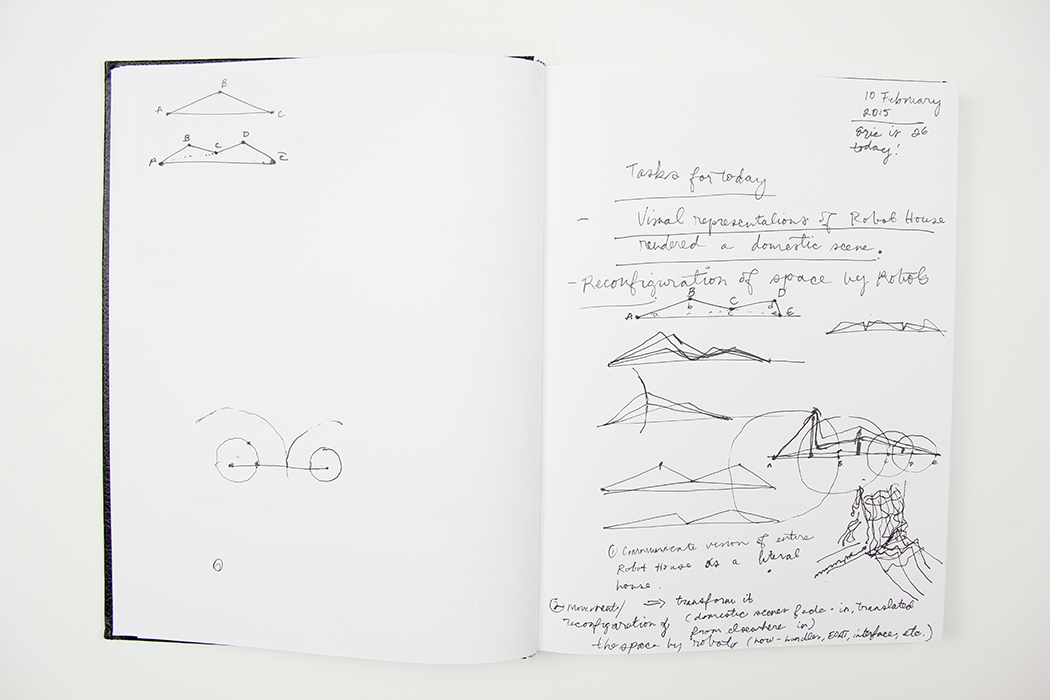 B
A
C
B
D
C
A
E
10 February
2015
Eric is 26
today!
Tasks for today
- Visual representations of Robot House
rendered a domestic scene.
- Reconfiguration of space by Robots
B
D
C
A
a
b
c
d
e
E
A
B
C
D
E
① Communicate vision of entire
Robot House as a literal
house.
② Movement/ ⇒ transform it
reconfiguration of (domestic scenes fade-in, translated
from elsewhere in)
the space by robots (now - handler, EEAT, interface, etc.)